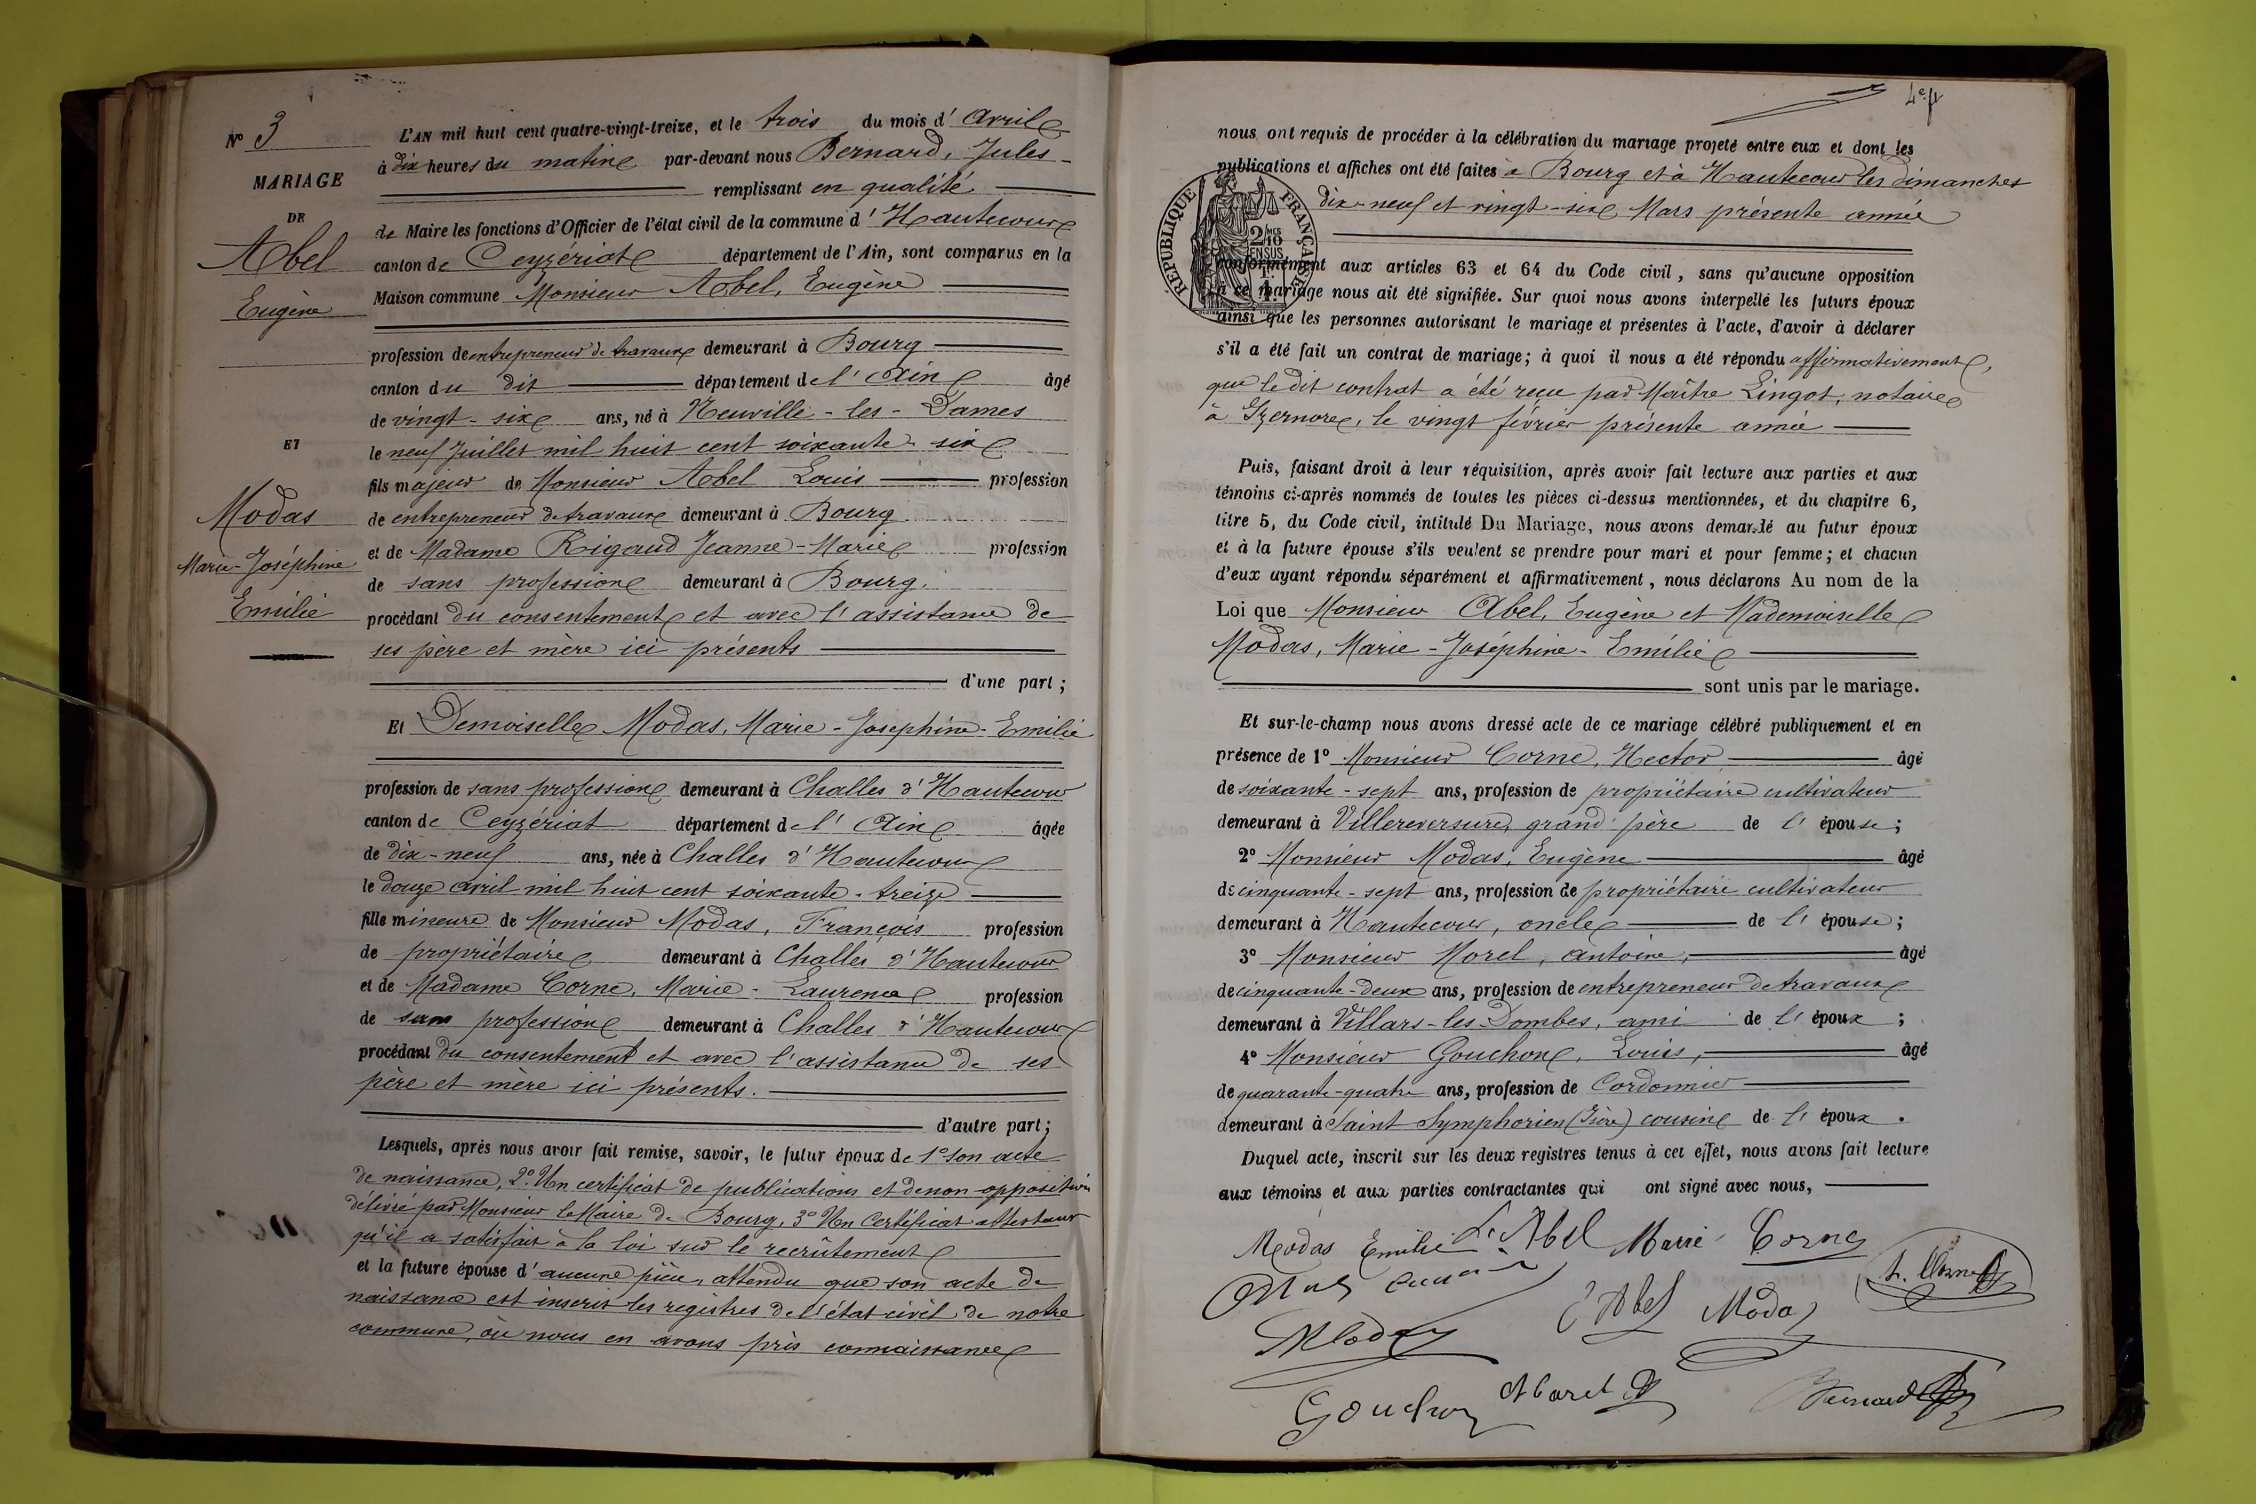 N° 3
MARIAGE
DE
Abel
Eugène
ET
Modas
Marie-Joséphine
Emilie
L'AN mil huit cent quatre-vingt-treize, et le trois du mois d'Avril
à dix heures du matin par-devant nous Bernard, Jules
remplissant en qualité
de Maire les fonctions d'Officier de l'état civil de la commune d'Hautecour
canton de Ceyzériat département de l'Ain, sont comparus en la
Maison commune Monsieur Abel, Eugène
profession de entrepreneur de travaux demeurant à Bourg
canton du dit département de l'Ain âgé
de vingt-six ans, né à Neuville-les-Dames
le neuf Juillet mil huit cent soixante-six
fils majeur de Monsieur Abel Louis profession
de entrepreneur de travaux demeurant à Bourg.
et de Madame Rigaud Jeanne-Marie profession
de sans profession demeurant à Bourg.
procédant du consentement et avec l'assistance de
ses père et mère ici présents
d'une part ;
Et Demoiselle Modas, Marie-Joséphine-Emilie
profession de sans profession demeurant à Challes d'Hautecour
canton de Ceyzériat département de l'Ain âgée
de dix-neuf ans, née à Challes d'Hautecour
le douze avril mil huit cent soixante-treize
fille mineure de Monsieur Modas, François profession
de propriétaire demeurant à Challes d'Hautecour
et de Madame Corne, Marie-Laurence profession
de sans profession demeurant à Challes d'Hautecour
procédant du consentement et avec l'assistance de ses
père et mère ici présents.
d'autre part ;
Lesquels, après nous avoir fait remise, savoir, le futur époux de 1° son acte
de naissance, 2° Un certificat de publications et de non-opposition
délivré par Monsieur le Maire de Bourg, 3° Un Certificat attestant
qu'il a satisfait à la loi sur le recrutement
et la future épouse d'aucune pièce, attendu que son acte de
naissance est inscrit les registres de l'état civil de notre
commune, où nous en avons pris connaissance
4e
nous ont requis de procéder à la célébration du mariage projeté entre eux et dont les
publications et affiches ont été faites à Bourg et à Hautecour les dimanches
dix-neuf et vingt-six Mars présente année
RÉPUBLIQUE FRANÇAISE
2/10 EN SUS
conformément aux articles 63 et 64 du Code civil, sans qu'aucune opposition
à ce mariage nous ait été signifiée. Sur quoi nous avons interpellé les futurs époux
ainsi que les personnes autorisant le mariage et présentes à l'acte, d'avoir à déclarer
s'il a été fait un contrat de mariage ; à quoi il nous a été répondu affirmativement,
que le dit contrat a été reçu par Maître Lingot, notaire
à Izernore, le vingt février présente année
Puis, faisant droit à leur réquisition, après avoir fait lecture aux parties et aux
témoins ci-après nommés de toutes les pièces ci-dessus mentionnées, et du chapitre 6,
titre 5, du Code civil, intitulé Du Mariage, nous avons demandé au futur époux
et à la future épouse s'ils veulent se prendre pour mari et pour femme ; et chacun
d'eux ayant répondu séparément et affirmativement, nous déclarons Au nom de la
Loi que Monsieur Abel, Eugène et Mademoiselle
Modas, Marie-Joséphine-Emilie
sont unis par le mariage.
Et sur-le-champ nous avons dressé acte de ce mariage célébré publiquement et en
présence de 1° Monsieur Corne, Hector, âgé
de soixante-sept ans, profession de propriétaire cultivateur
demeurant à Villereversure, grand'père de l'épouse ;
2° Monsieur Modas, Eugène âgé
de cinquante-sept ans, profession de propriétaire cultivateur
demeurant à Hautecour, oncle de l'épouse ;
3° Monsieur Morel, Antoine, âgé
de cinquante-deux ans, profession de entrepreneur de travaux
demeurant à Villars-les-Dombes, ami de l'époux ;
4° Monsieur Gouchon, Louis, âgé
de quarante-quatre ans, profession de Cordonnier
demeurant à Saint Symphorien (Isère) cousin de l'époux.
Duquel acte, inscrit sur les deux registres tenus à cet effet, nous avons fait lecture
aux témoins et aux parties contractantes qui ont signé avec nous,
Modas Emilie Abel Marie Corne
E Abel Modas
Modas
Gouchon Morel Bernard